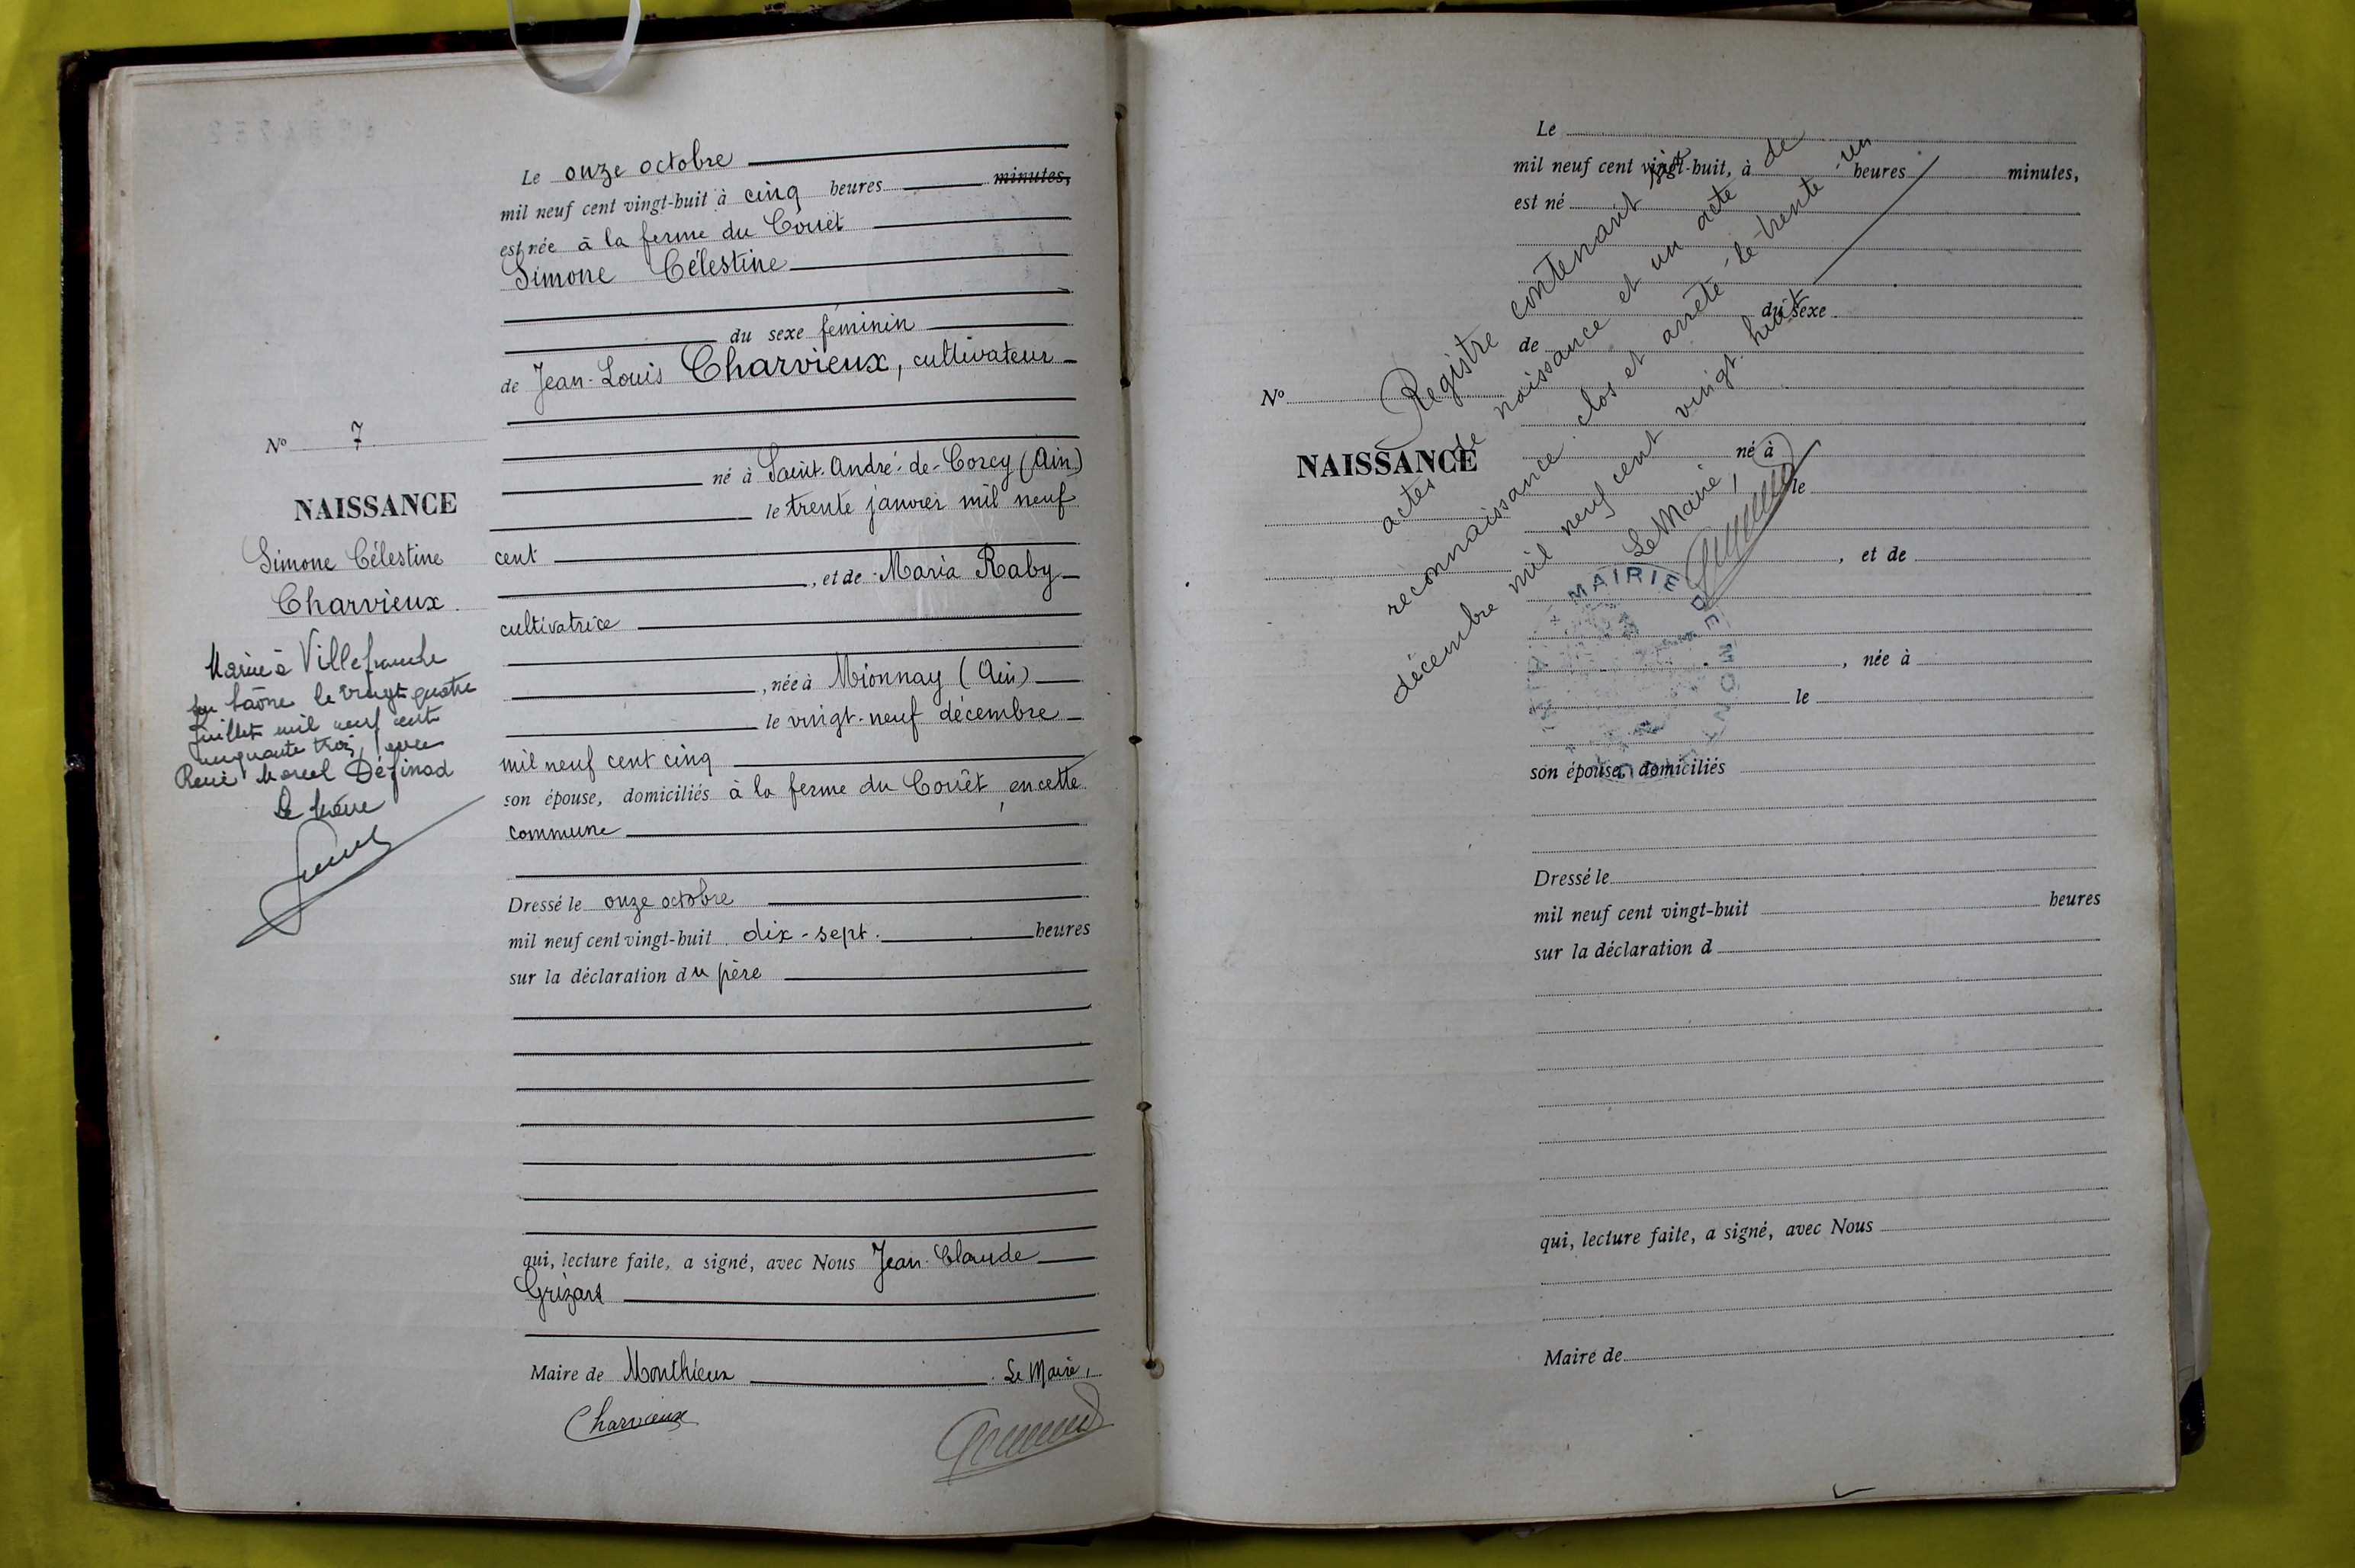 Le onze octobre
mil neuf cent vingt-huit à cinq heures minutes,
est née à la ferme du Couët
Simone Célestine
du sexe féminin
de Jean-Louis Charvieux, cultivateur
né à Saint-André-de-Corcy (Ain)
le trente janvier mil neuf
cent
, et de Maria Raby
cultivatrice
, née à Mionnay (Ain)
le vingt-neuf décembre
mil neuf cent cinq
son épouse, domiciliés à la ferme du Couët, en cette
commune
Dressé le onze octobre
mil neuf cent vingt-huit dix-sept heures
sur la déclaration du père
qui, lecture faite, a signé, avec Nous Jean-Claude
Maire de Monthieux Le Maire,
Charvieux
N° 7
NAISSANCE
Simone Célestine
Charvieux
Mariée à Villefranche
sur Saône le vingt quatre
juillet mil neuf cent
cinquante trois avec
René Marcel
Le Maire
Le
mil neuf cent vingt-huit, à heures minutes,
est né
du sexe
de
N°
NAISSANCE
né à
le
, et de
, née à
le
son épouse, domiciliés
Dressé le
mil neuf cent vingt-huit heures
sur la déclaration d
qui, lecture faite, a signé, avec Nous
Maire de
Registre contenant sept
actes de naissance et un acte de
reconnaissance clos et arrêté le trente-un
décembre mil neuf cent vingt-huit
Le Maire,
MAIRIE DE MONTHIEUX